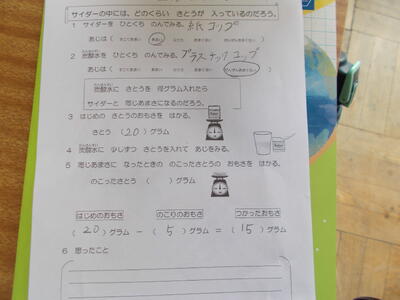 サイダーの中には、どのくらい さとうが 入っているのだろう。
1 サイダーを ひとくち のんでみる。紙コップ
あじは(すごくあまい あまい ぜんぜんあまくない)
2 炭酸水を ひとくち のんでみる。プラスチックコップ
あじは(すごくあまい ぜんぜんあまくない)
炭酸水に さとうを 何グラム入れたら
サイダーと 同じあまさになるのだろう。
3 はじめの さとうのおもさを はかる。
さとう (20)グラム
4 炭酸水に 少しずつ さとうを入れて あじをみる。
5 同じあまさに なったときの のこったさとうの おもさを はかる。
のこったさとう ( )グラム
はじめのおもさ のこりのおもさ つかったおもさ
(20)グラム − (5)グラム = (15)グラム
6 思ったこと